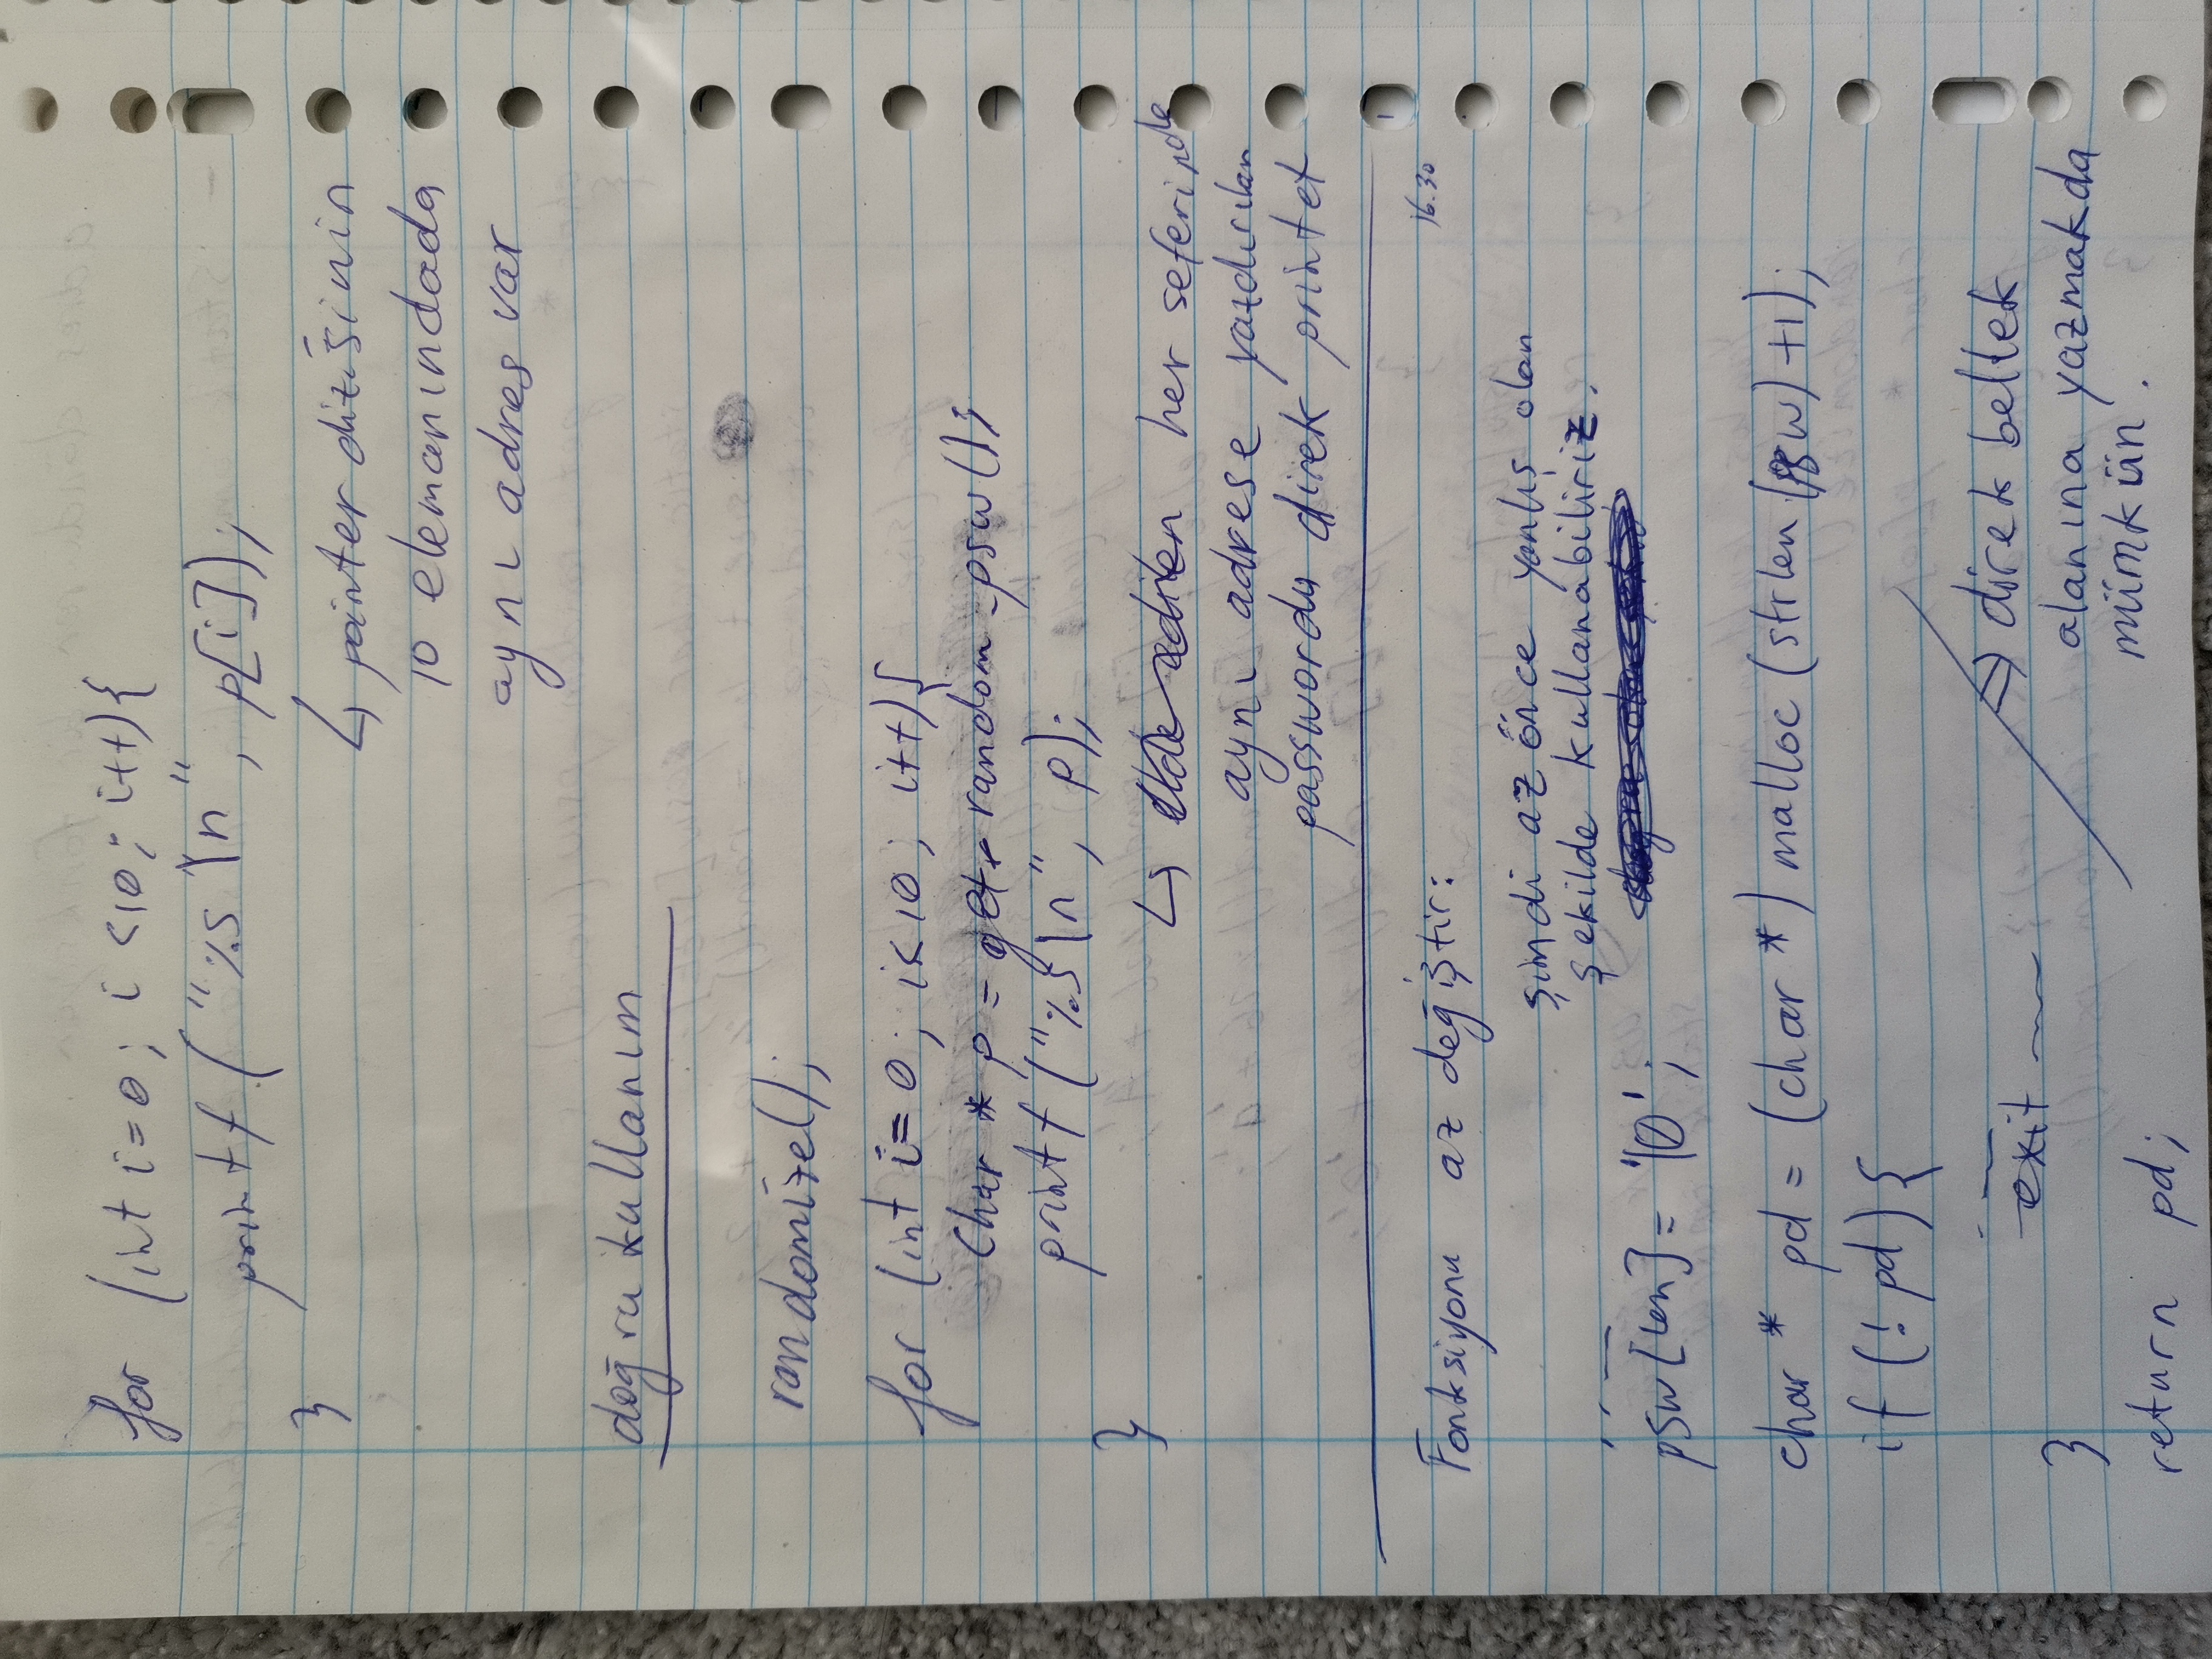 for (int i=0; i<10; i++){
printf("%s\n", p[i]);
}
↳ pointer dizisinin
10 elemanındada
aynı adres var
doğru kullanım
randomize();
for (int i=0; i<10; i++){
Char * p = get_random_psw();
printf("%s\n", p);
}
↳ her seferinde
aynı adrese yazdırılan
passwordu direk printet
Fonksiyonu az değiştir:
16.30
şimdi az önce yanlış olan
şekilde kullanabiliriz.
psw[len] = '\0';
char * pd = (char *) malloc (strlen (psw) +1);
if (! pd) {
exit
}
⇒ direk bellek
alanına yazmakda
mümkün.
return pd;